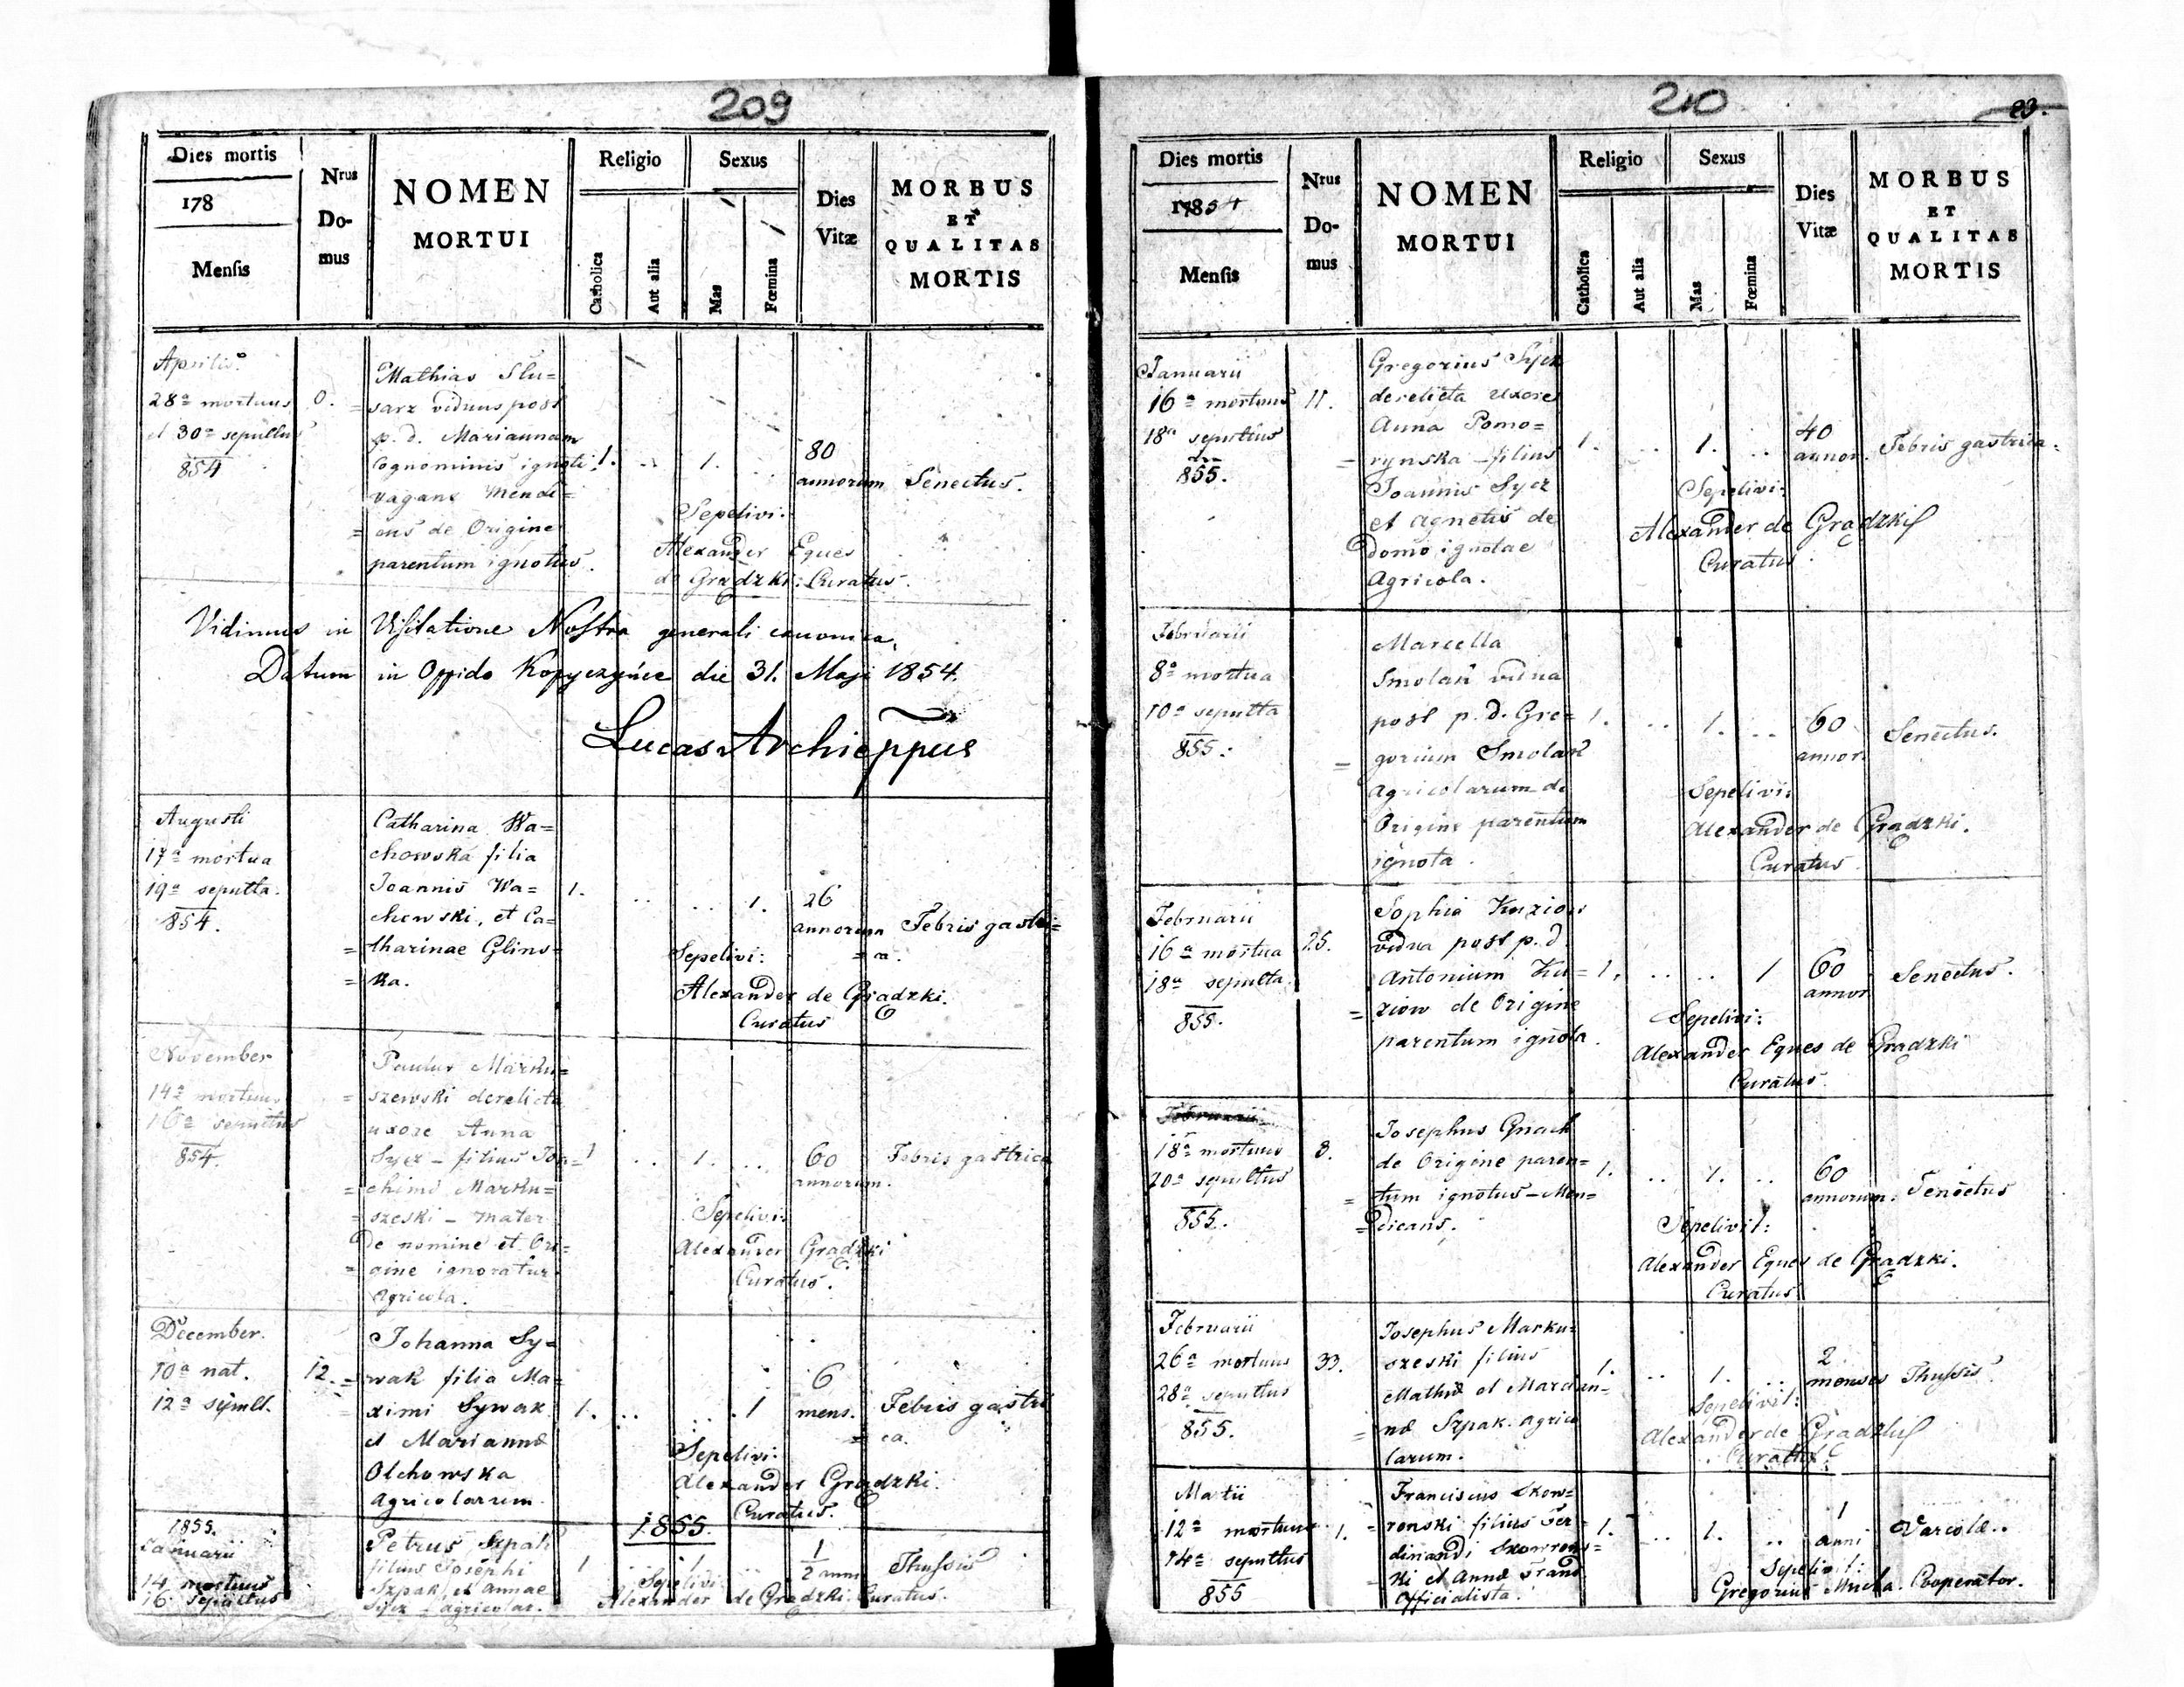 209
Dies mortis
178
Mensis
Nrus
Do-
mus
NOMEN
MORTUI
Religio
Catholica
Aut alia
Sexus
Mas
Fœmina
Dies
Vitæ
MORBUS
ET
QUALITAS
MORTIS
Aprilis
28a mortuus
et 30a sepultus
854
0.
Mathias Slu=
=sarz viduus post
p. d. Mariannam
cognominis ignoti
vagans Mendi=
=ans de Origine
parentum ignotus.
1.
..
1.
..
80
annorum
Senectus.
Sepelivi:
Alexander Eques
de Grądzki: Curatus.
Vidimus in Visitatione Nostra generali canonica,
Datum in Oppido Kopyczyńce die 31. Maji 1854.
Lucas Archieppus
Augusti
17a mortua
19a sepulta.
854.
Catharina Wa=
chowska filia
Joannis Wa=
chowski, et Ca=
=tharinae Glins=
=ka.
1.
..
..
1.
26
annorum
Febris gastri=
=ca.
Sepelivi:
Alexander de Grądzki.
Curatus
November
14a mortuus
16a sepultus
854.
Paulus Marku=
=szewski derelicta
uxore Anna
Sycz – filius Joa=
=chimi Marku=
=szeski – mater
de nomine et Ori=
=gine ignoratur.
Agricola.
1
..
1.
..
60
annorum.
Febris gastrica
Sepelivi:
Alexander Grądzki
Curatus.
December.
10a nat.
12a sepult.
12.
Johanna Sy=
=wak filia Ma=
ximi Sywak
et Mariannæ
Olchowska
Agricolarum.
1.
..
..
1
6
mens.
Febris gastri
=ca.
Sepelivi:
Alexander Grądzki.
Curatus.
1855.
1855.
Januarii
14 mortuus
16. Sepultus
Petrus Szpak
filius Josephi
Szpak et Annae
Sycz – agricolar.
1
..
1
..
1/2 anni
Thussis
Sepelivi
Alexander de Grądzki. Curatus.
210
23.
Dies mortis
17854
Mensis
Nrus
Do-
mus
NOMEN
MORTUI
Religio
Catholica
Aut alia
Sexus
Mas
Fœmina
Dies
Vitæ
MORBUS
ET
QUALITAS
MORTIS
Januarii
16a mortuus
18a sepultus
855.
11.
Gregorius Sycz
derelicta uxore
Anna Pomo=
=rynska – filius
Joannis Sycz
et Agnetis de
domo ignotae
Agricola.
1.
..
1.
..
40
annor.
Febris gastrica.
Sepelivi:
Alexander de Grądzki
Curatus.
Februarii
8a mortua
10a sepulta
855.
Marcella
Smolak vidua
post p. d. Gre=
=gorium Smolak
Agricolarum de
Origine parentum
ignota.
1.
..
1.
..
60
annor.
Senectus.
Sepelivi:
Alexander de Grądzki.
Curatus.
Februarii
16a mortua
18a sepulta
855.
25.
Sophia Kuziow
vidua post p. d.
Antonium Ku=
=ziow de Origine
parentum ignota.
1.
..
..
1
60
annor
Senectus.
Sepelivi:
Alexander Eques de Grądzki
Curatus.
Februarii
18a mortuus
20a sepultus
855.
3.
Josephus Gnach
de Origine paren=
=tum ignotus – Men=
=dicans.
1.
..
1.
..
60
annorum.
Senectus
Sepelivit:
Alexander Eques de Grądzki.
Curatus.
Februarii
26a mortuus
28a sepultus
855.
33.
Josephus Marku=
szeski filius
Mathiæ et Marian=
=næ Szpak. Agrico
larum.
1.
..
1.
..
2
menses
Thussis
Sepelivit:
Alexander de Grądzki
Curatus
Martii
12a mortuus
14a sepultus
855
1.
Franciscus Skow=
=ronski filius Fer=
dinandi Skowrons=
=ki et Annæ Frand
Officialista.
1.
..
1.
..
1
anni
Variolæ..
Sepelivit:
Gregorius Mucha. Cooperator.